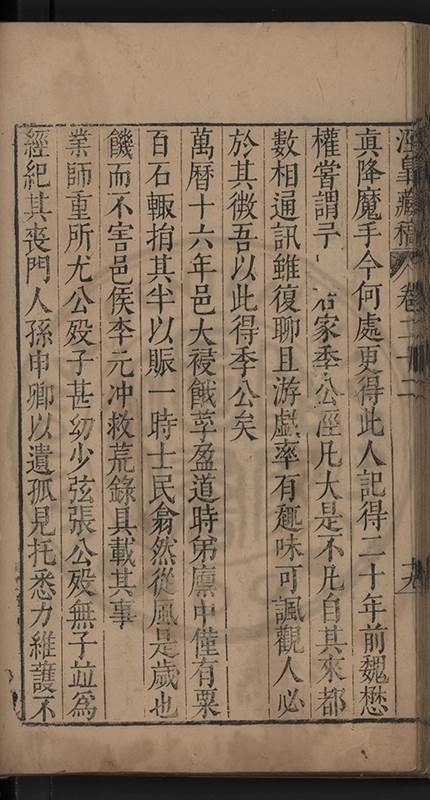 涇皐藏稿 卷二十二
真降魔手今何處更得此人記得二十年前魏懋
權嘗謂予 家季公涇凡大是不凡自其來都
數相通訊雖復聊且游戲率有趣味可諷觀人必
於其微吾以此得季公矣
萬曆十六年邑大祲餓莩盈道時弟廪中僅有粟
百石輙捐其半以賑一時士民翕然從風是歲也
饑而不害邑侯李元冲救荒錄具載其事
業師重所尤公殁子甚幼少弦張公殁無子竝爲
經紀其喪門人孫申卿以遺孤見托悉力維護不